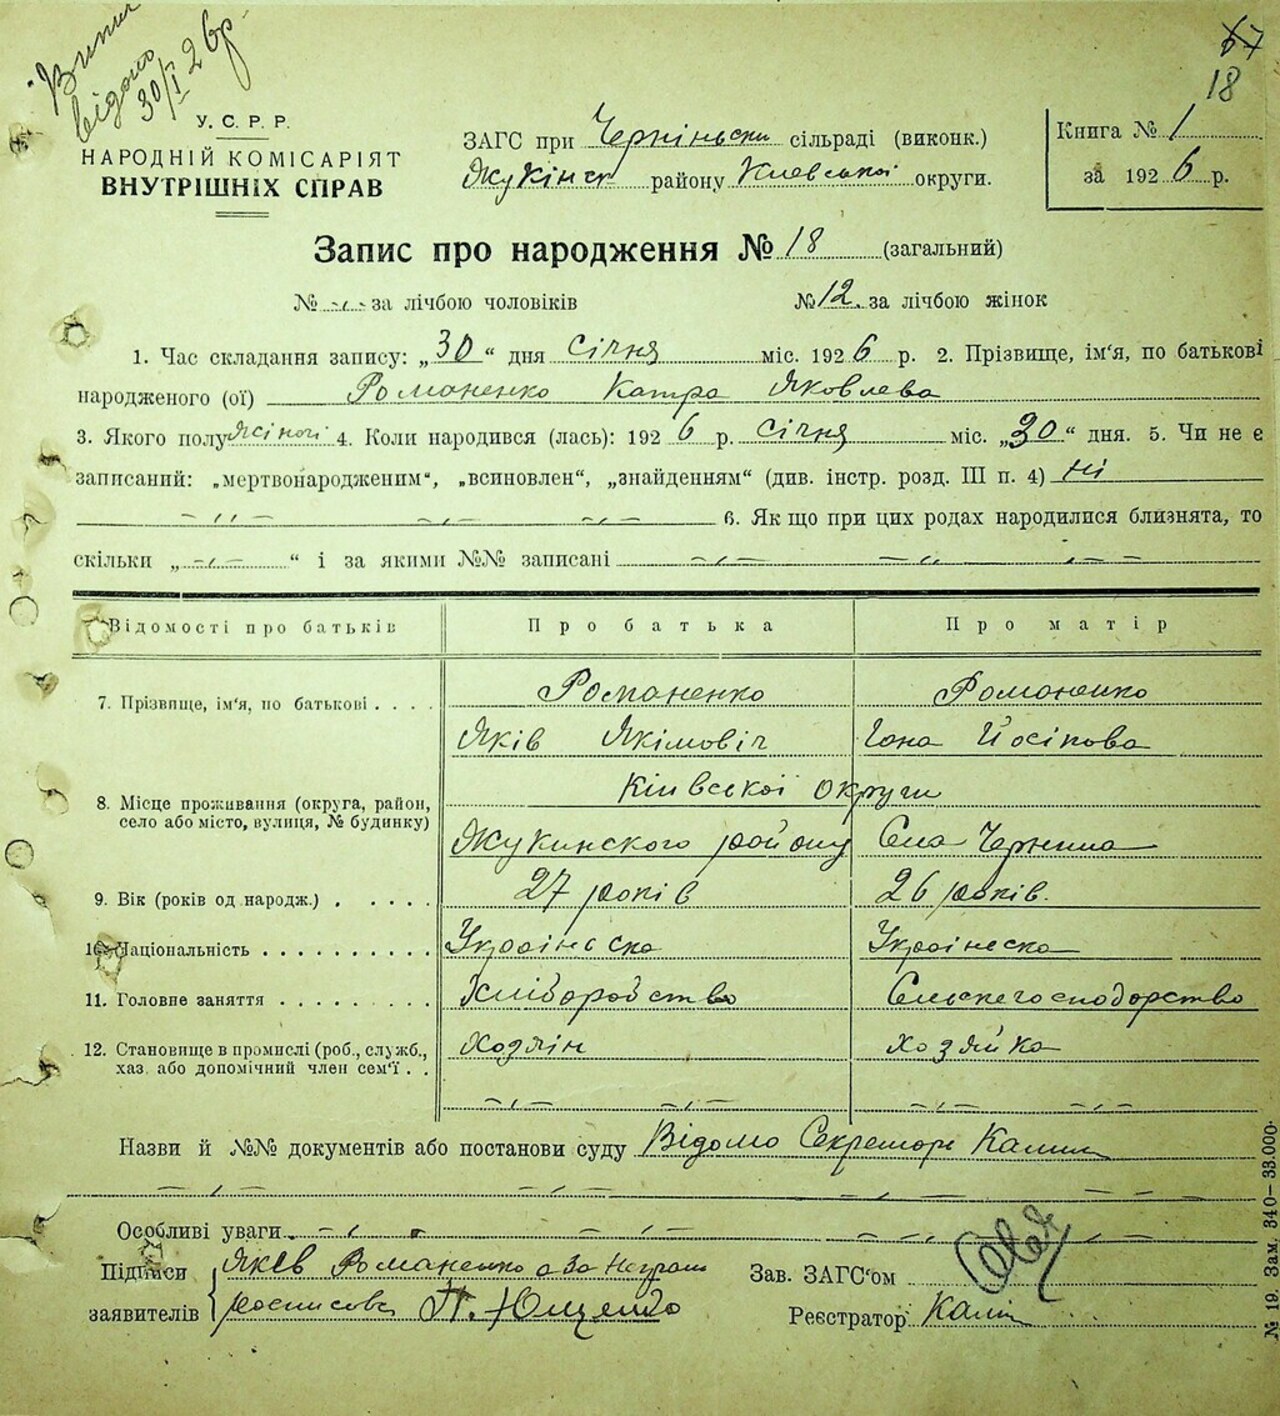 відано
30/I 26р.
67
18
У. С. Р. Р.
НАРОДНІЙ КОМІСАРІЯТ
ВНУТРІШНІХ СПРАВ
ЗАГС при Черніньски сільраді (виконк.)
Жукінск району Киевської округи.
Книга № 1
за 1926 р.
Запис про народження № 18 (загальний)
№ -,- за лічбою чоловіків № 12. за лічбою жінок
1. Час складання запису: „30“ дня січня міс. 1926 р. 2. Прізвище, ім'я, по батькові
народженого (ої) Романенко Катра Яковлева
3. Якого полу жіночі 4. Коли народився (лась): 1926 р. січня міс. „30“ дня. 5. Чи не є
записаний: „мертвонародженим“, „всиновлен“, „знайденням“ (див. інстр. розд. III п. 4) ні
-,,- -,- -,- 6. Як що при цих родах народилися близнята, то
скільки „-,-“ і за якими №№ записані -,- -,,- -,-
Відомості про батьків Про батька Про матір
7. Прізвище, ім'я, по батькові . . . . Романенко Романенко
Яків Якімовіч Гана Йосіпова
8. Місце проживання (округа, район, Кіивської округи
село або місто, вулиця, № будинку) Жукинского району Села Чернина
9. Вік (років од народж.) . . . . . 27 років 26 років.
10. Національність . . . . . . . . . . Українска Українеска
11. Головне заняття . . . . . . . . . Хліборобство Сельскегосподорство
12. Становище в промислі (роб., служб., Хозяін хозяйка
хаз. або допомічний член сем'ї . . -,- -,- -,- -,-
Назви й №№ документів або постанови суду Відомо Секретарь
-,- -,- -,- - -
Особливі уваги -,- -,- -,,- -,-
Підписи Яків Романенко а за неграм
заявителів росписовсь П. Ющенко
Зав. ЗАГС'ом
Реєстратор
№ 19. Зам. 340–33.000.